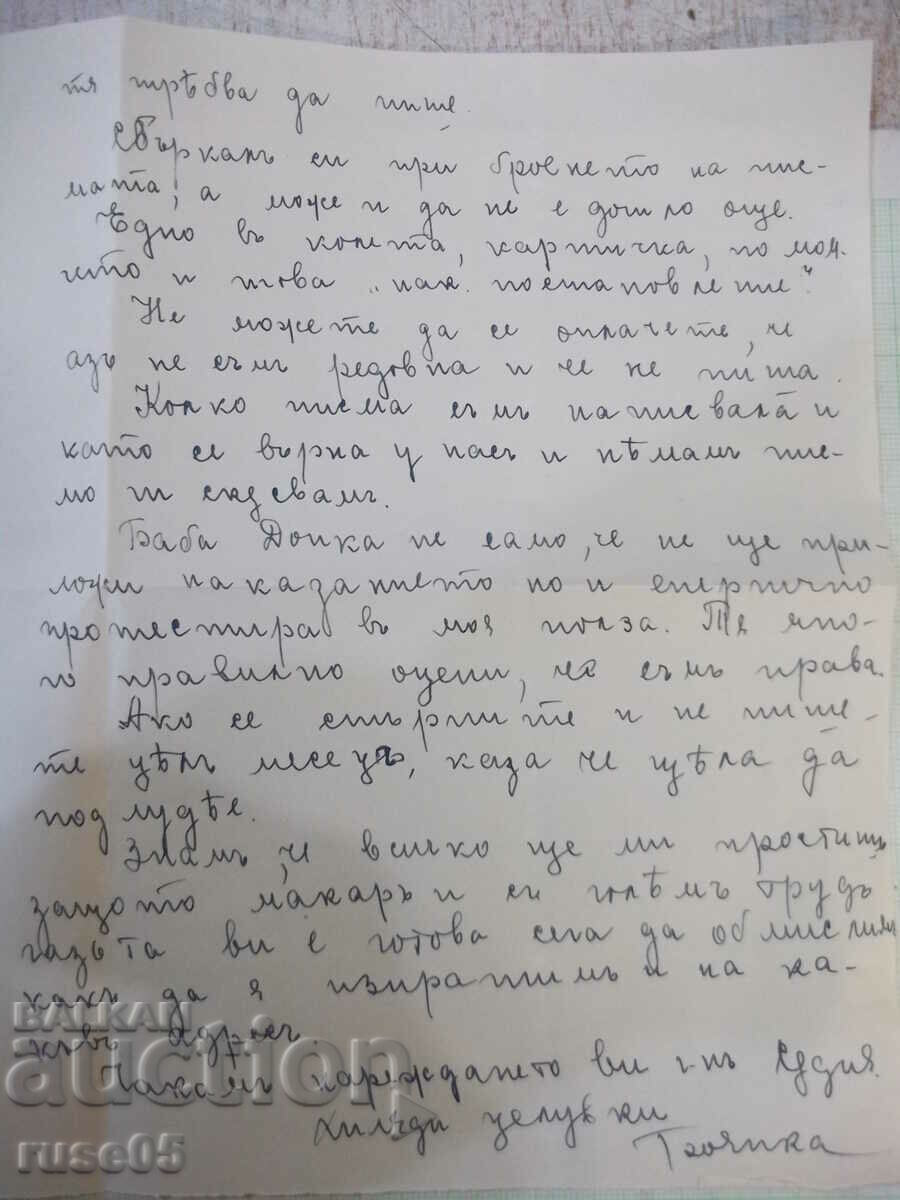 тя трѣбва да пише.
Сбъркалъ си при броенето на пис-
мата, а може и да не е дошло още.
Едно въ колета, картичка, по моя-
ито и това „пак. поста новлетие“
Не можете да се оплачете, че
азъ не съмъ редовна и че не пиша.
Колко писма съмъ написвала и
като се върна у насъ и нѣмамъ пис-
мо ги скъсвамъ.
Баба Донка не само, че не ще при-
ложи наказанието но и енергично
протестира въ моя полза. Тя мно-
го правилно оцени, че съмъ права.
Ако се стърпите и не пише-
те цѣлъ месецъ, каза че щѣла да
подлудѣе.
Знамъ, че всичко ще ми простишъ
защото макаръ и съ голѣмъ трудъ
газьта ви е готова сега да обмислимъ
какъ да я изпратимъ и на ка-
къвъ адресъ.
Чакамъ нареждането ви г-нъ Судия.
Хиляди целувки
Боянка
BALKAN
auction
ruse05